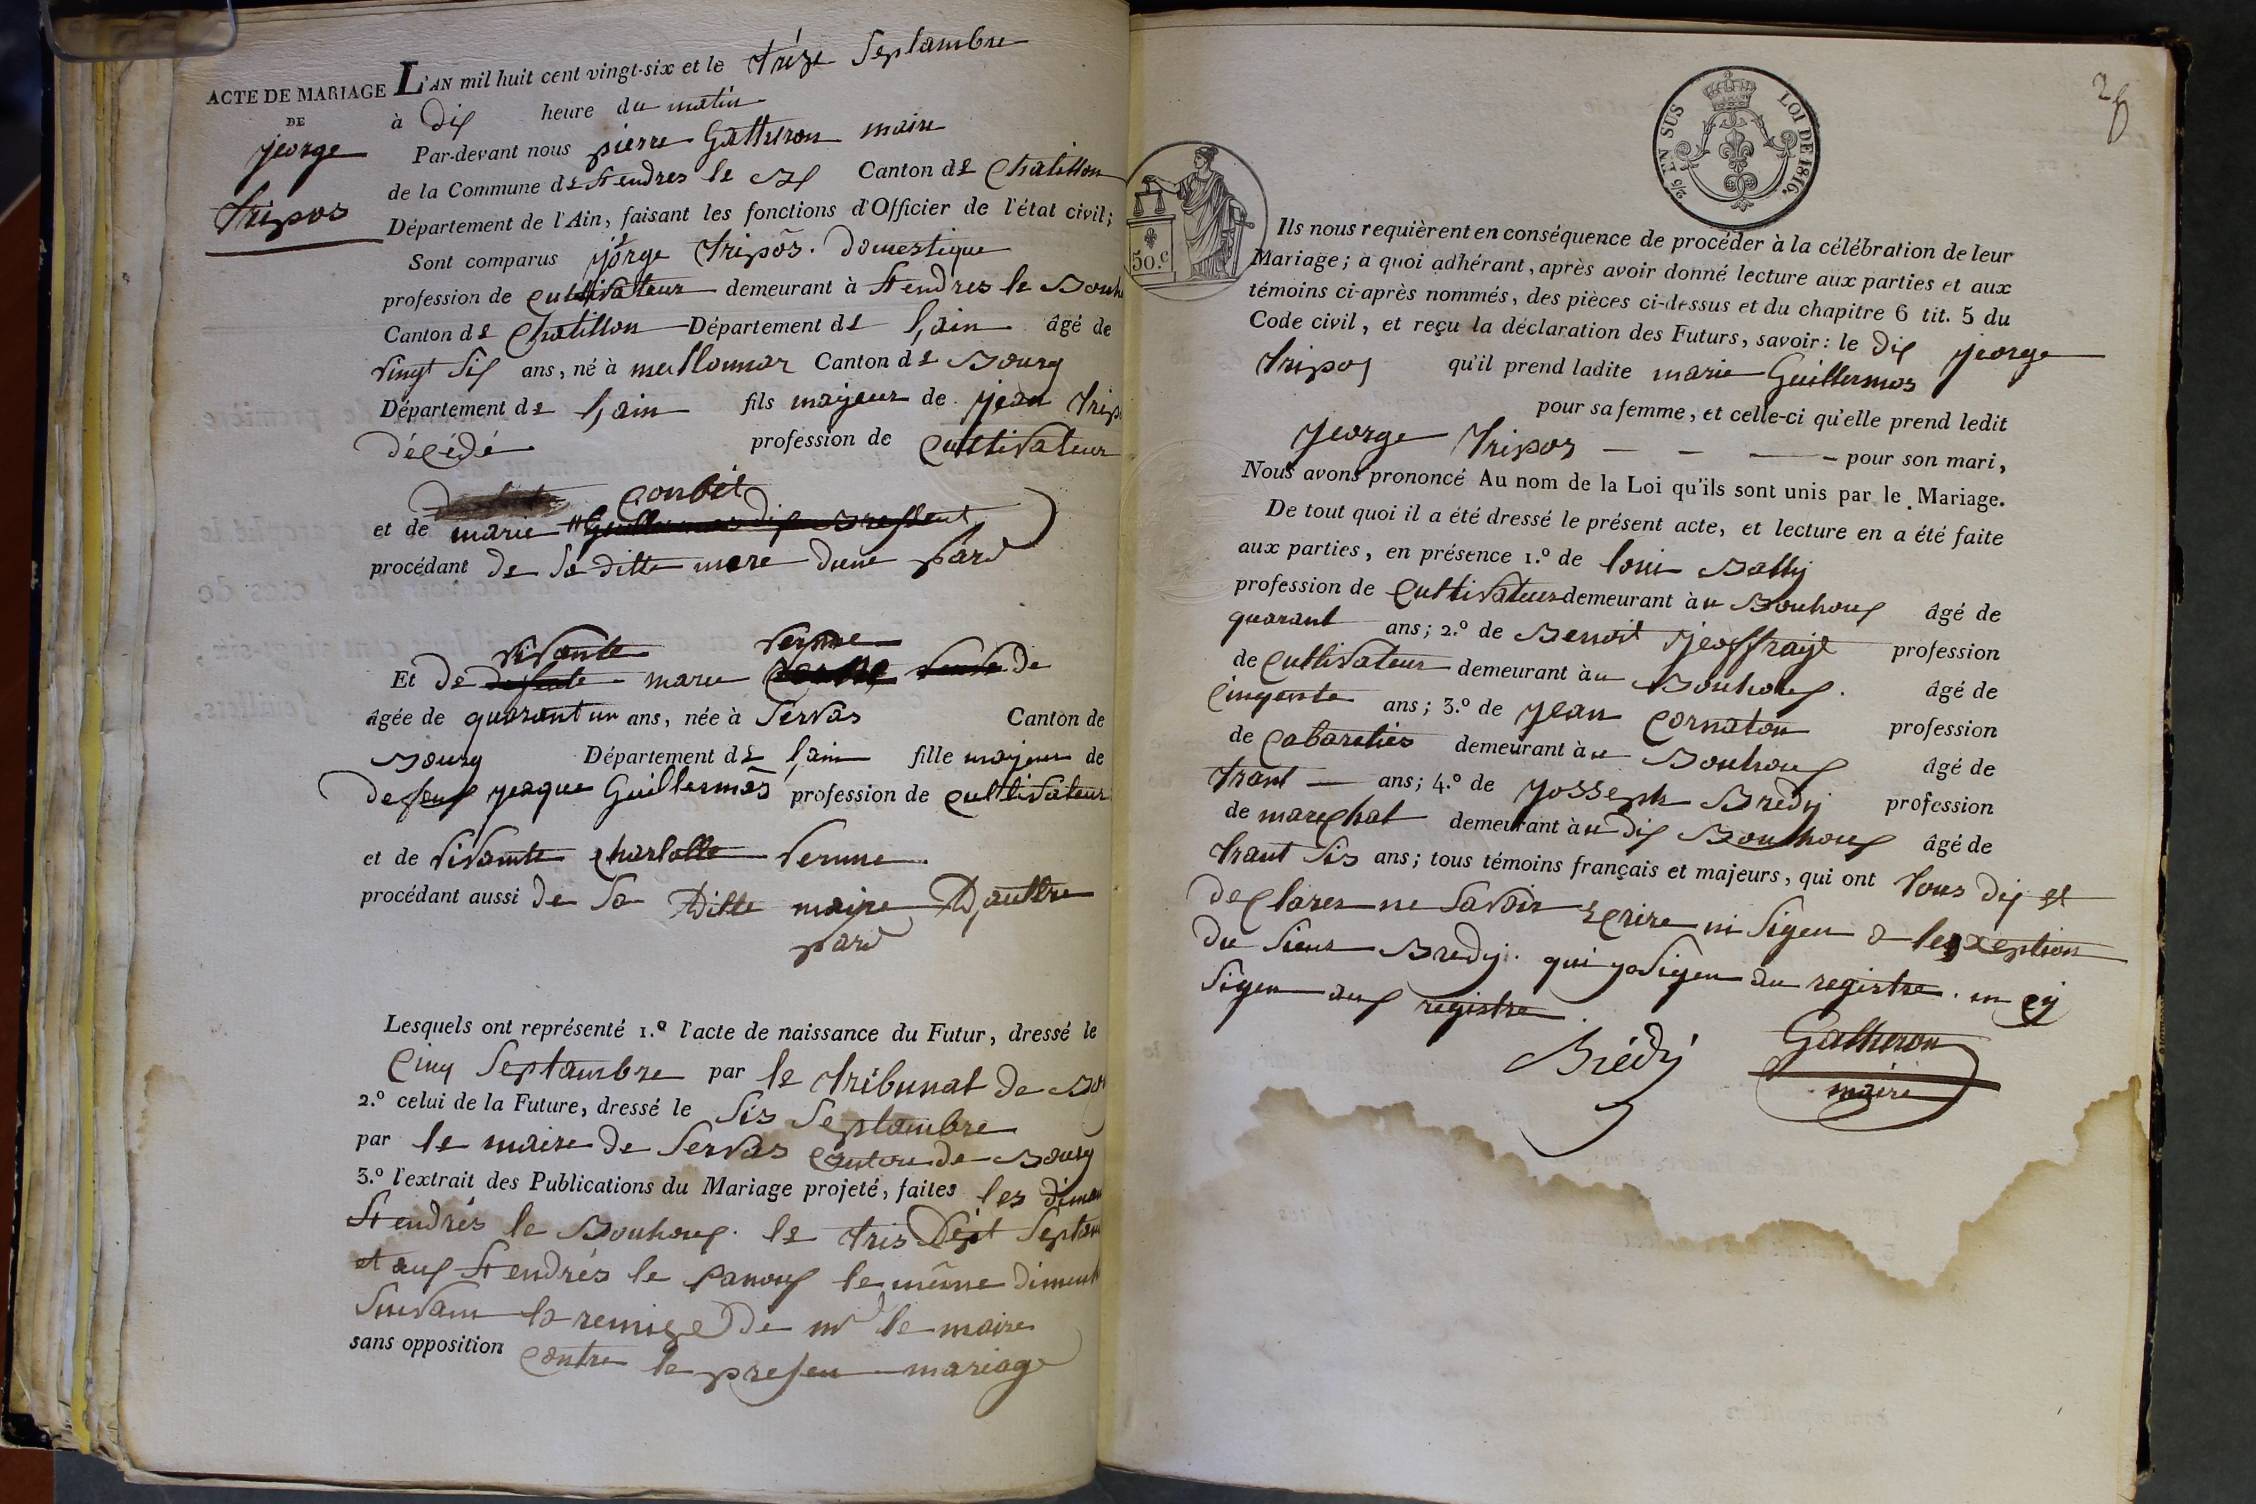 ACTE DE MARIAGE
DE
jeorge
tripos
L'AN mil huit cent vingt-six et le trèze Septambre
à dix heure du matin
Par-devant nous pierre Gatheron maire
de la Commune de St endres le Canton de Chatillon
Département de l'Ain, faisant les fonctions d'Officier de l'état civil;
Sont comparus jorge tripos. domestique
profession de cultivateur demeurant à St endres le Bouh
Canton de Chatillon Département de l,ain âgé de
vingt six ans, né à Canton de Bourg
Département de l,ain fils majeur de jean trip
décédé profession de cultivateur
conbet
et de marie Guillermos
procédant de sa ditte mere dune pard
vivante vernne
Et de defunte marie veuve de
âgée de quarant un ans, née à Servas Canton de
Bourg Département de l,ain fille majeur de
defeux jeaque Guillermos profession de cultivateur
et de vivante charlotte vernne
procédant aussi de sa ditte maire D,auttre
pard
Lesquels ont représenté 1.º l'acte de naissance du Futur, dressé le
Cinq Septambre par le tribunal de Bo
2.º celui de la Future, dressé le Six Septambre
par le maire de Servas canton de Bourg
3.º l'extrait des Publications du Mariage projeté, faites les diman
St endrés le Bouhoux. le tris Dept Septam
et aux St endrés le panoux le même diment
Suivam la remize de mr le maire
sans opposition contre le presen mariage
26
2/5 EN SUS LOI DE 1816.
50.c
Ils nous requièrent en conséquence de procéder à la célébration de leur
Mariage; à quoi adhérant, après avoir donné lecture aux parties et aux
témoins ci-après nommés, des pièces ci-dessus et du chapitre 6 tit. 5 du
Code civil, et reçu la déclaration des Futurs, savoir: le dix jeorge
tripos qu'il prend ladite marie Guillermos
pour sa femme, et celle-ci qu'elle prend ledit
jeorge tripos - - - - pour son mari,
Nous avons prononcé Au nom de la Loi qu'ils sont unis par le Mariage.
De tout quoi il a été dressé le présent acte, et lecture en a été faite
aux parties, en présence 1.º de loui Bally
profession de cultivateur demeurant àu Bouhoux âgé de
quarant ans; 2.º de Benoit jeoffraye profession
de cultivateur demeurant àu Bouhoux. âgé de
cinqente ans; 3.º de jean cornaton profession
de cabareties demeurant àu Bouhoux âgé de
trant — ans; 4.º de josseph Bredij profession
de marechal demeurant àu dix Bouhoux âgé de
trant Six ans; tous témoins français et majeurs, qui ont tous dix et
declares ne Savoir Ecrire ni Signeu a lexxeption
du Sieur Bredij. qui ya Signeu au registre. en cy
Signeu aux registre.
Brédij Gatheron
maire